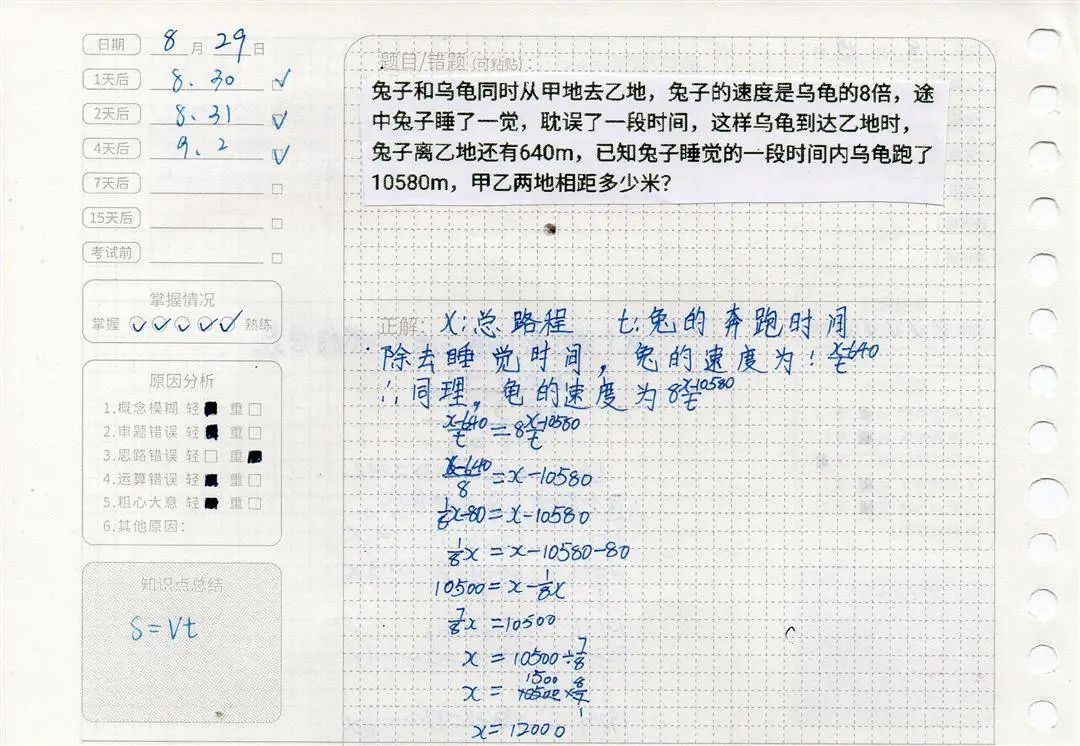 日期 8 月 29 日
1天后 8.30 ✓
2天后 8.31 ✓
4天后 9.2 ✓
7天后
15天后
考试前
掌握情况
掌握 ✓ ✓ ✓ ✓ ✓ 熟练
原因分析
1.概念模糊 轻 重
2.审题错误 轻 重
3.思路错误 轻 重
4.运算错误 轻 重
5.粗心大意 轻 重
6.其他原因:
知识点总结
S=Vt
题目/错题(可粘贴):
兔子和乌龟同时从甲地去乙地，兔子的速度是乌龟的8倍，途
中兔子睡了一觉，耽误了一段时间，这样乌龟到达乙地时，
兔子离乙地还有640m，已知兔子睡觉的一段时间内乌龟跑了
10580m，甲乙两地相距多少米？
正解: x:总路程 t:兔的奔跑时间
除去睡觉时间，兔的速度为: x-640/t
∴同理，龟的速度为8 x-10580/t
x-640/t = 8 x-10580/t
x-640/8 = x-10580
1/8x-80 = x-10580
1/8x = x-10580-80
10500 = x-1/8x
7/8x = 10500
x = 10500÷7/8
x = 10500 1500 × 8/7 1
x = 12000